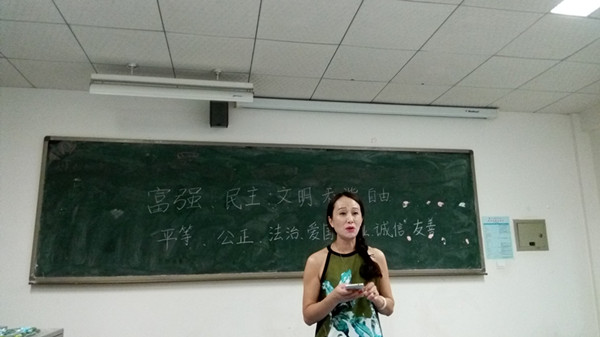 富强、民主、文明、和谐、自由
平等、公正、法治、爱国、诚信、友善